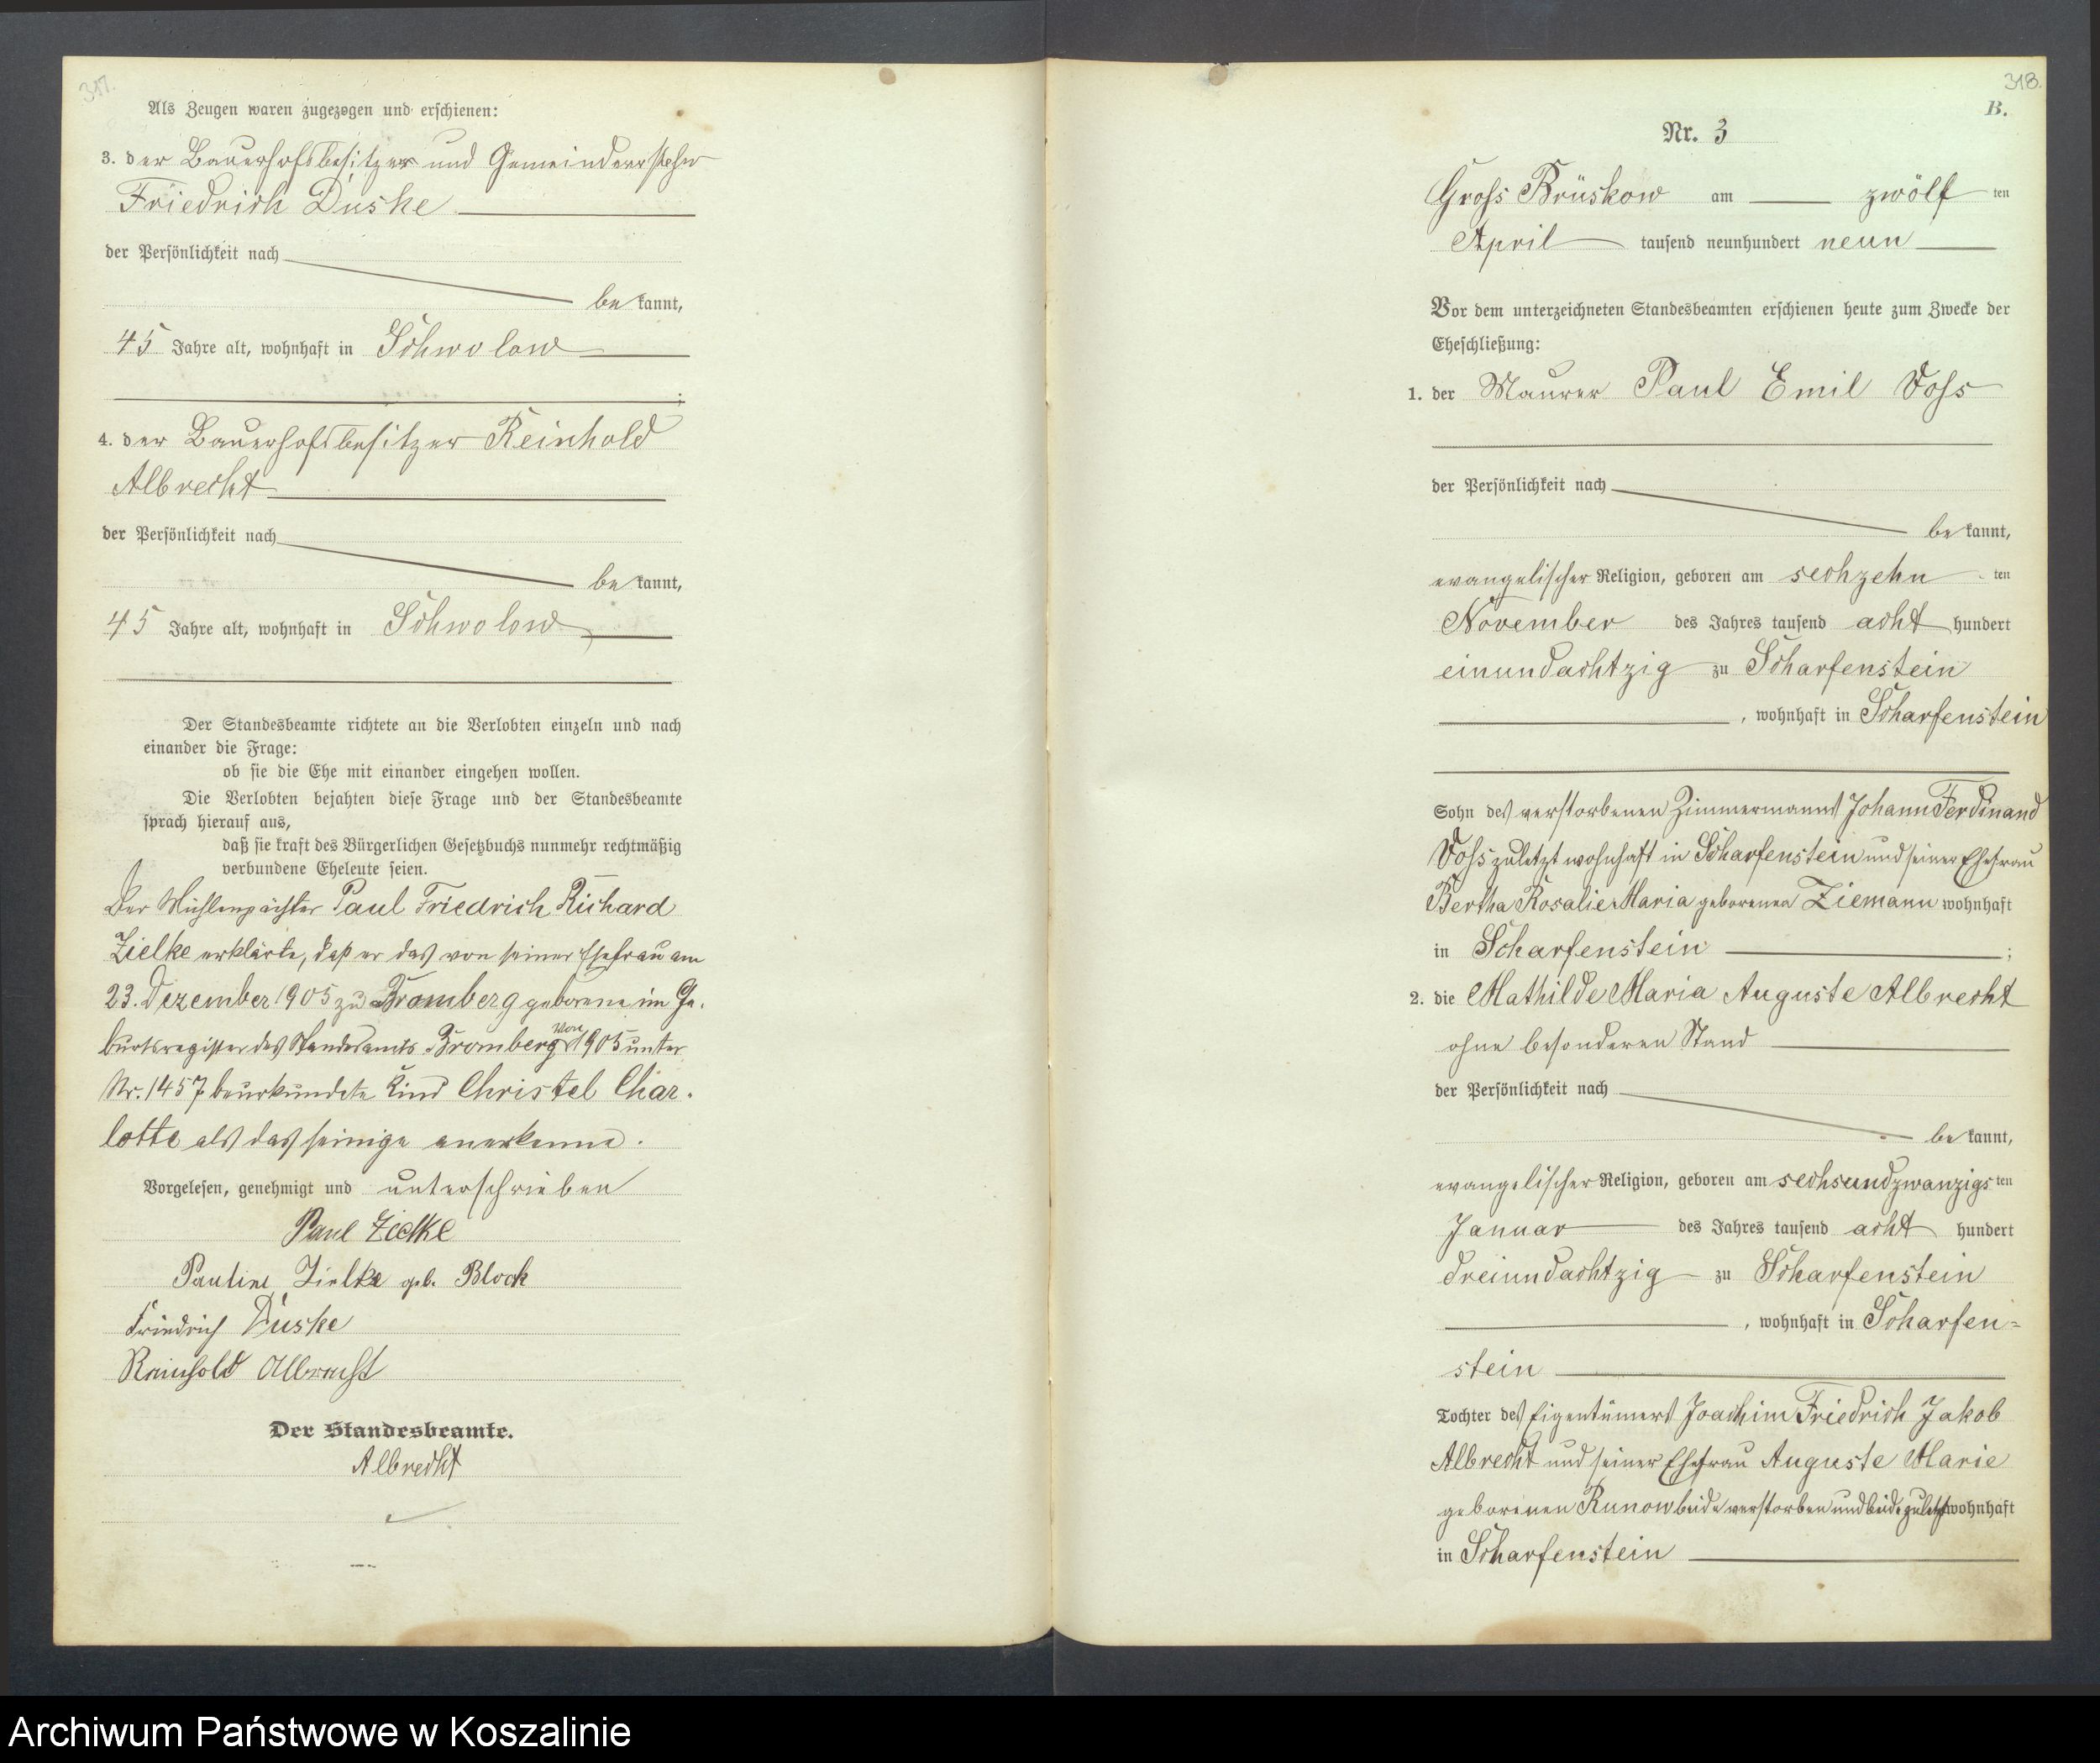 317.
Als Zeugen waren zugezogen und erschienen:
3. der Bauerhofsbesitzer und Gemeindevorsteher
Friedrich Duske
der Persönlichkeit nach
be kannt,
45 Jahre alt, wohnhaft in Schwolow
;
4. der Bauerhofsbesitzer Reinhold
Albrecht
der Persönlichkeit nach
be kannt,
45 Jahre alt, wohnhaft in Schwolow
Der Standesbeamte richtete an die Verlobten einzeln und nach
einander die Frage:
ob sie die Ehe mit einander eingehen wollen.
Die Verlobten bejahten diese Frage und der Standesbeamte
sprach hierauf aus,
daß sie kraft des Bürgerlichen Gesetzbuchs nunmehr rechtmäßig
verbundene Eheleute seien.
Der Mühlenpächter Paul Friedrich Richard
Zielke erklärte, daß er das von seiner Ehefrau am
23. Dezember 1905 zu Bromberg geborene im Ge-
burtsregister des Standesamts Bromberg von 1905 unter
Nr. 1457 beurkundete Kind Christel Char-
lotte als das seinige anerkenne.
Vorgelesen, genehmigt und unterschrieben
Paul Zielke
Pauline Zielke geb. Block
Friedrich Duske
Reinhold Albrecht
Der Standesbeamte.
Albrecht
318.
B.
Nr. 3
Gross Brüskow am zwölf ten
April tausend neunhundert neun
Vor dem unterzeichneten Standesbeamten erschienen heute zum Zwecke der
Eheschließung:
1. der Maurer Paul Emil Voss
der Persönlichkeit nach
be kannt,
evangelischer Religion, geboren am sechzehn ten
November des Jahres tausend acht hundert
einundachtzig zu Scharfenstein
, wohnhaft in Scharfenstein
Sohn des verstorbenen Zimmermanns Johann Ferdinand
Voss zuletzt wohnhaft in Scharfenstein und seiner Ehefrau
Bertha Rosalie Maria geborenen Ziemann wohnhaft
in Scharfenstein ;
2. die Mathilde Maria Auguste Albrecht
ohne besonderen Stand
der Persönlichkeit nach
be kannt,
evangelischer Religion, geboren am sechsundzwanzigs ten
Januar des Jahres tausend acht hundert
dreiundachtzig zu Scharfenstein
, wohnhaft in Scharfen=
stein
Tochter des Eigentümers Joachim Friedrich Jakob
Albrecht und seiner Ehefrau Auguste Marie
geborenen Runow beide verstorben und beide zuletzt wohnhaft
in Scharfenstein
Archiwum Państwowe w Koszalinie